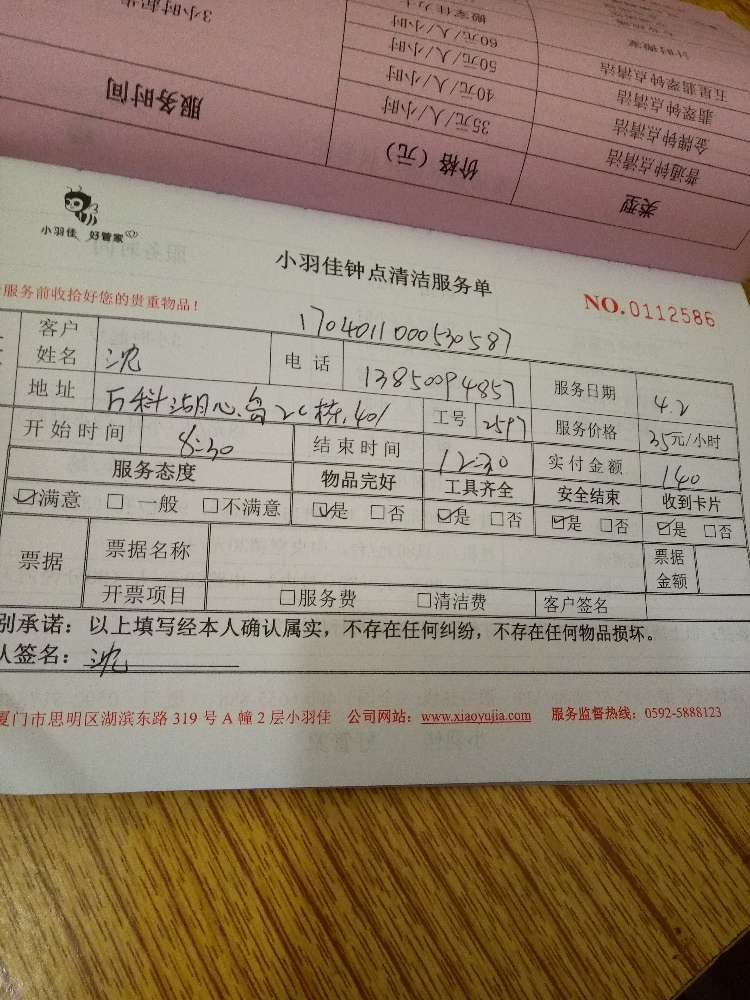 类型 价格（元） 服务时间
普通钟点清洁 35元/人/小时
金牌钟点清洁 40元/人/小时
翡翠钟点清洁 50元/人/小时
五星翡翠钟点清洁 60元/人/小时
3小时起
计时搬家
小羽佳 好管家
小羽佳钟点清洁服务单
服务前收拾好您的贵重物品！
NO.0112586
1704011000530587
客户姓名 沈 电话 13850094857 服务日期 4.2
地址 万科湖心岛2C栋.401 工号 2597 服务价格 35元/小时
开始时间 8:30 结束时间 12:30 实付金额 140
服务态度 物品完好 工具齐全 安全结束 收到卡片
☑满意 □一般 □不满意 ☑是 □否 ☑是 □否 ☑是 □否 ☑是 □否
票据 票据名称 票据金额
开票项目 □服务费 □清洁费 客户签名
别承诺：以上填写经本人确认属实，不存在任何纠纷，不存在任何物品损坏。
人签名：沈
厦门市思明区湖滨东路319号A幢2层小羽佳 公司网站：www.xiaoyujia.com 服务监督热线：0592-5888123